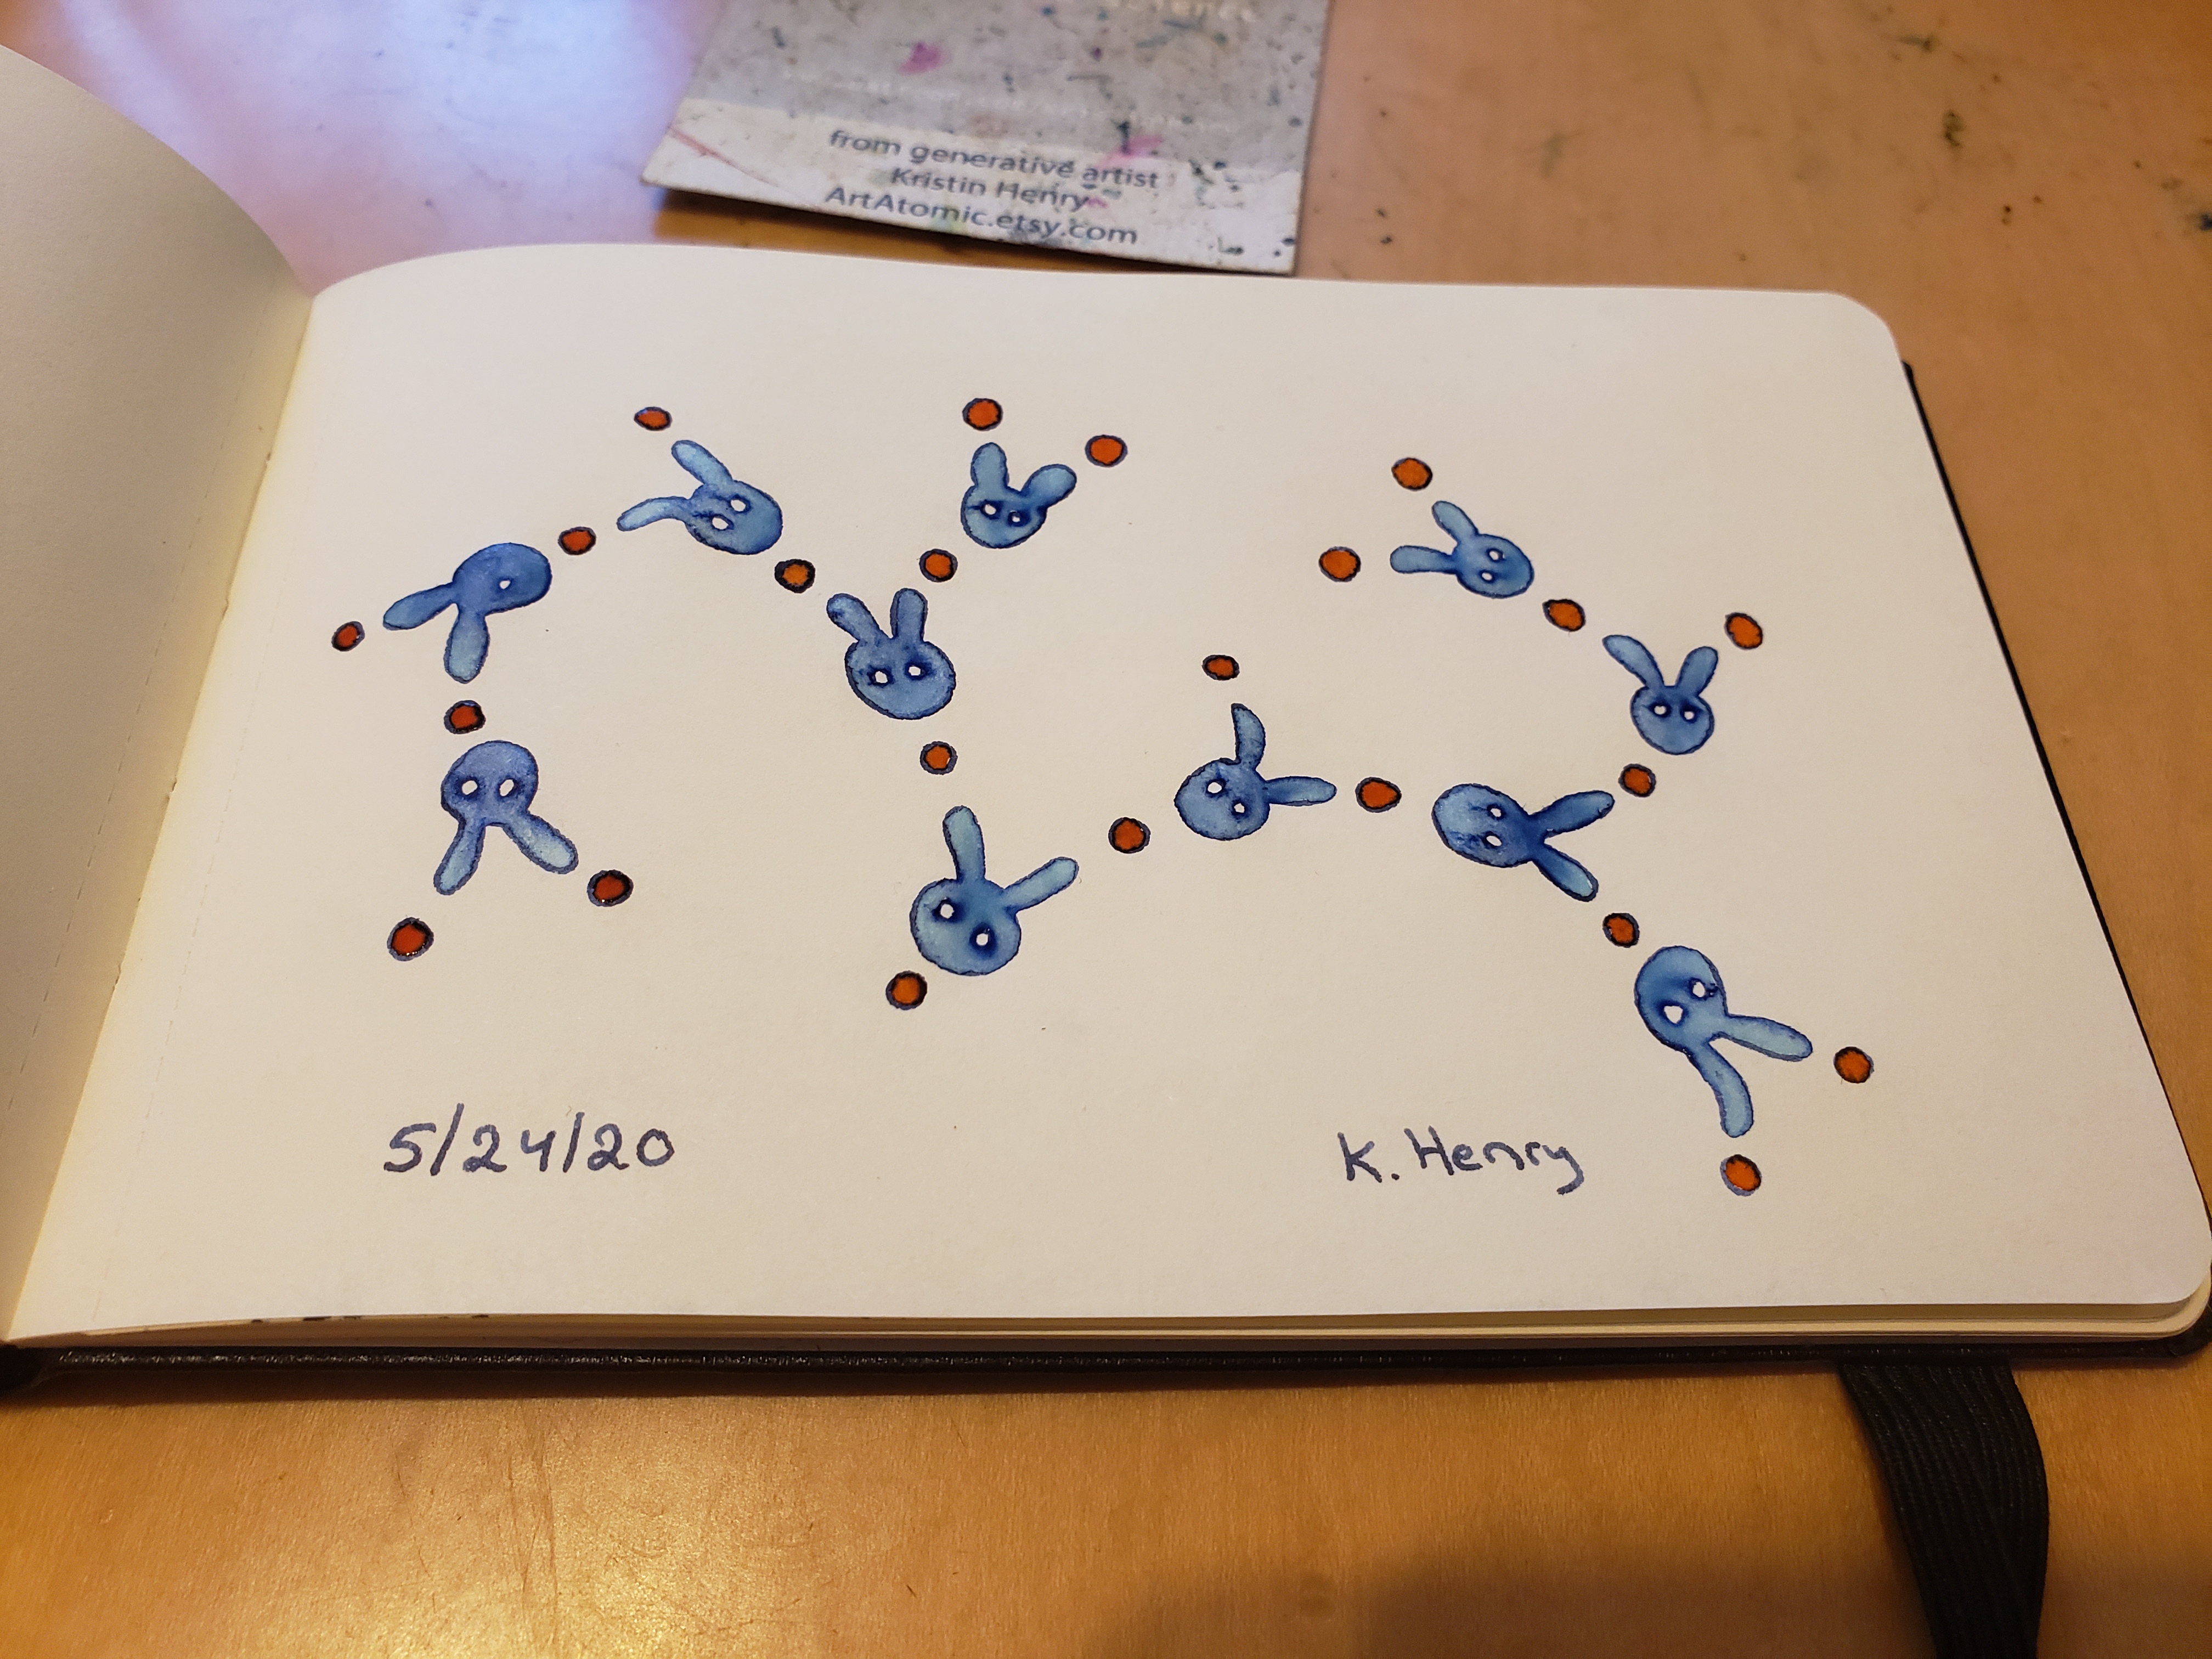 from generative artist
Kristin Henry
ArtAtomic.etsy.com
5/24/20
K. Henry